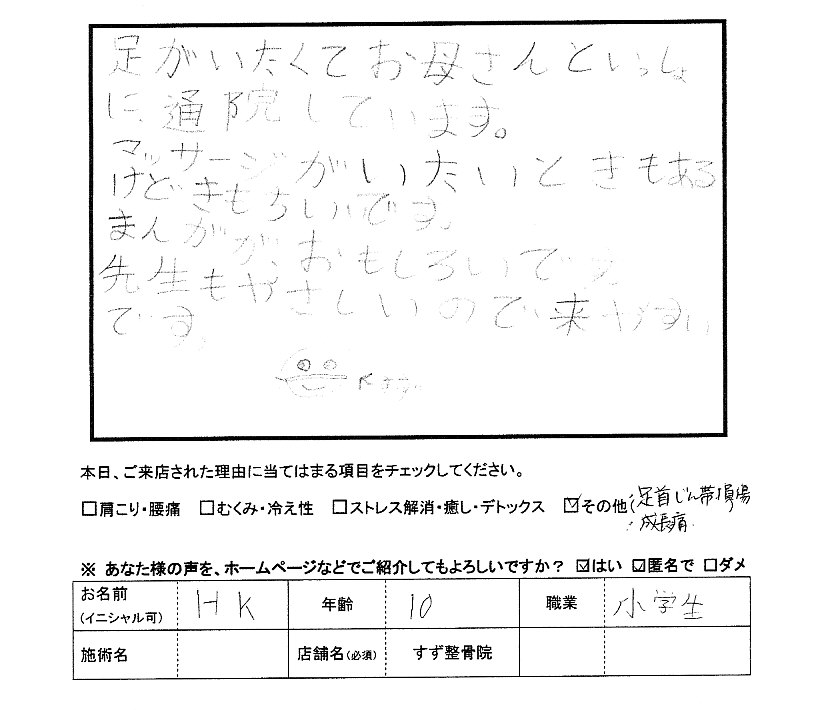 足がいたくてお母さんといっしょ
に通院しています。
マッサージがいたいときもある
けどきもちいいです。
まんがが、おもしろいです
先生もやさしいので、来やすい
です。
本日、ご来店された理由に当てはまる項目をチェックしてください。
□肩こり・腰痛 □むくみ・冷え性 □ストレス解消・癒し・デトックス ☑その他(足首じん帯損傷
成長痛
※ あなた様の声を、ホームページなどでご紹介してもよろしいですか？ ☑はい ☑匿名で □ダメ
お名前 (イニシャル可) HK 年齢 10 職業 小学生
施術名 店舗名(必須) すず整骨院